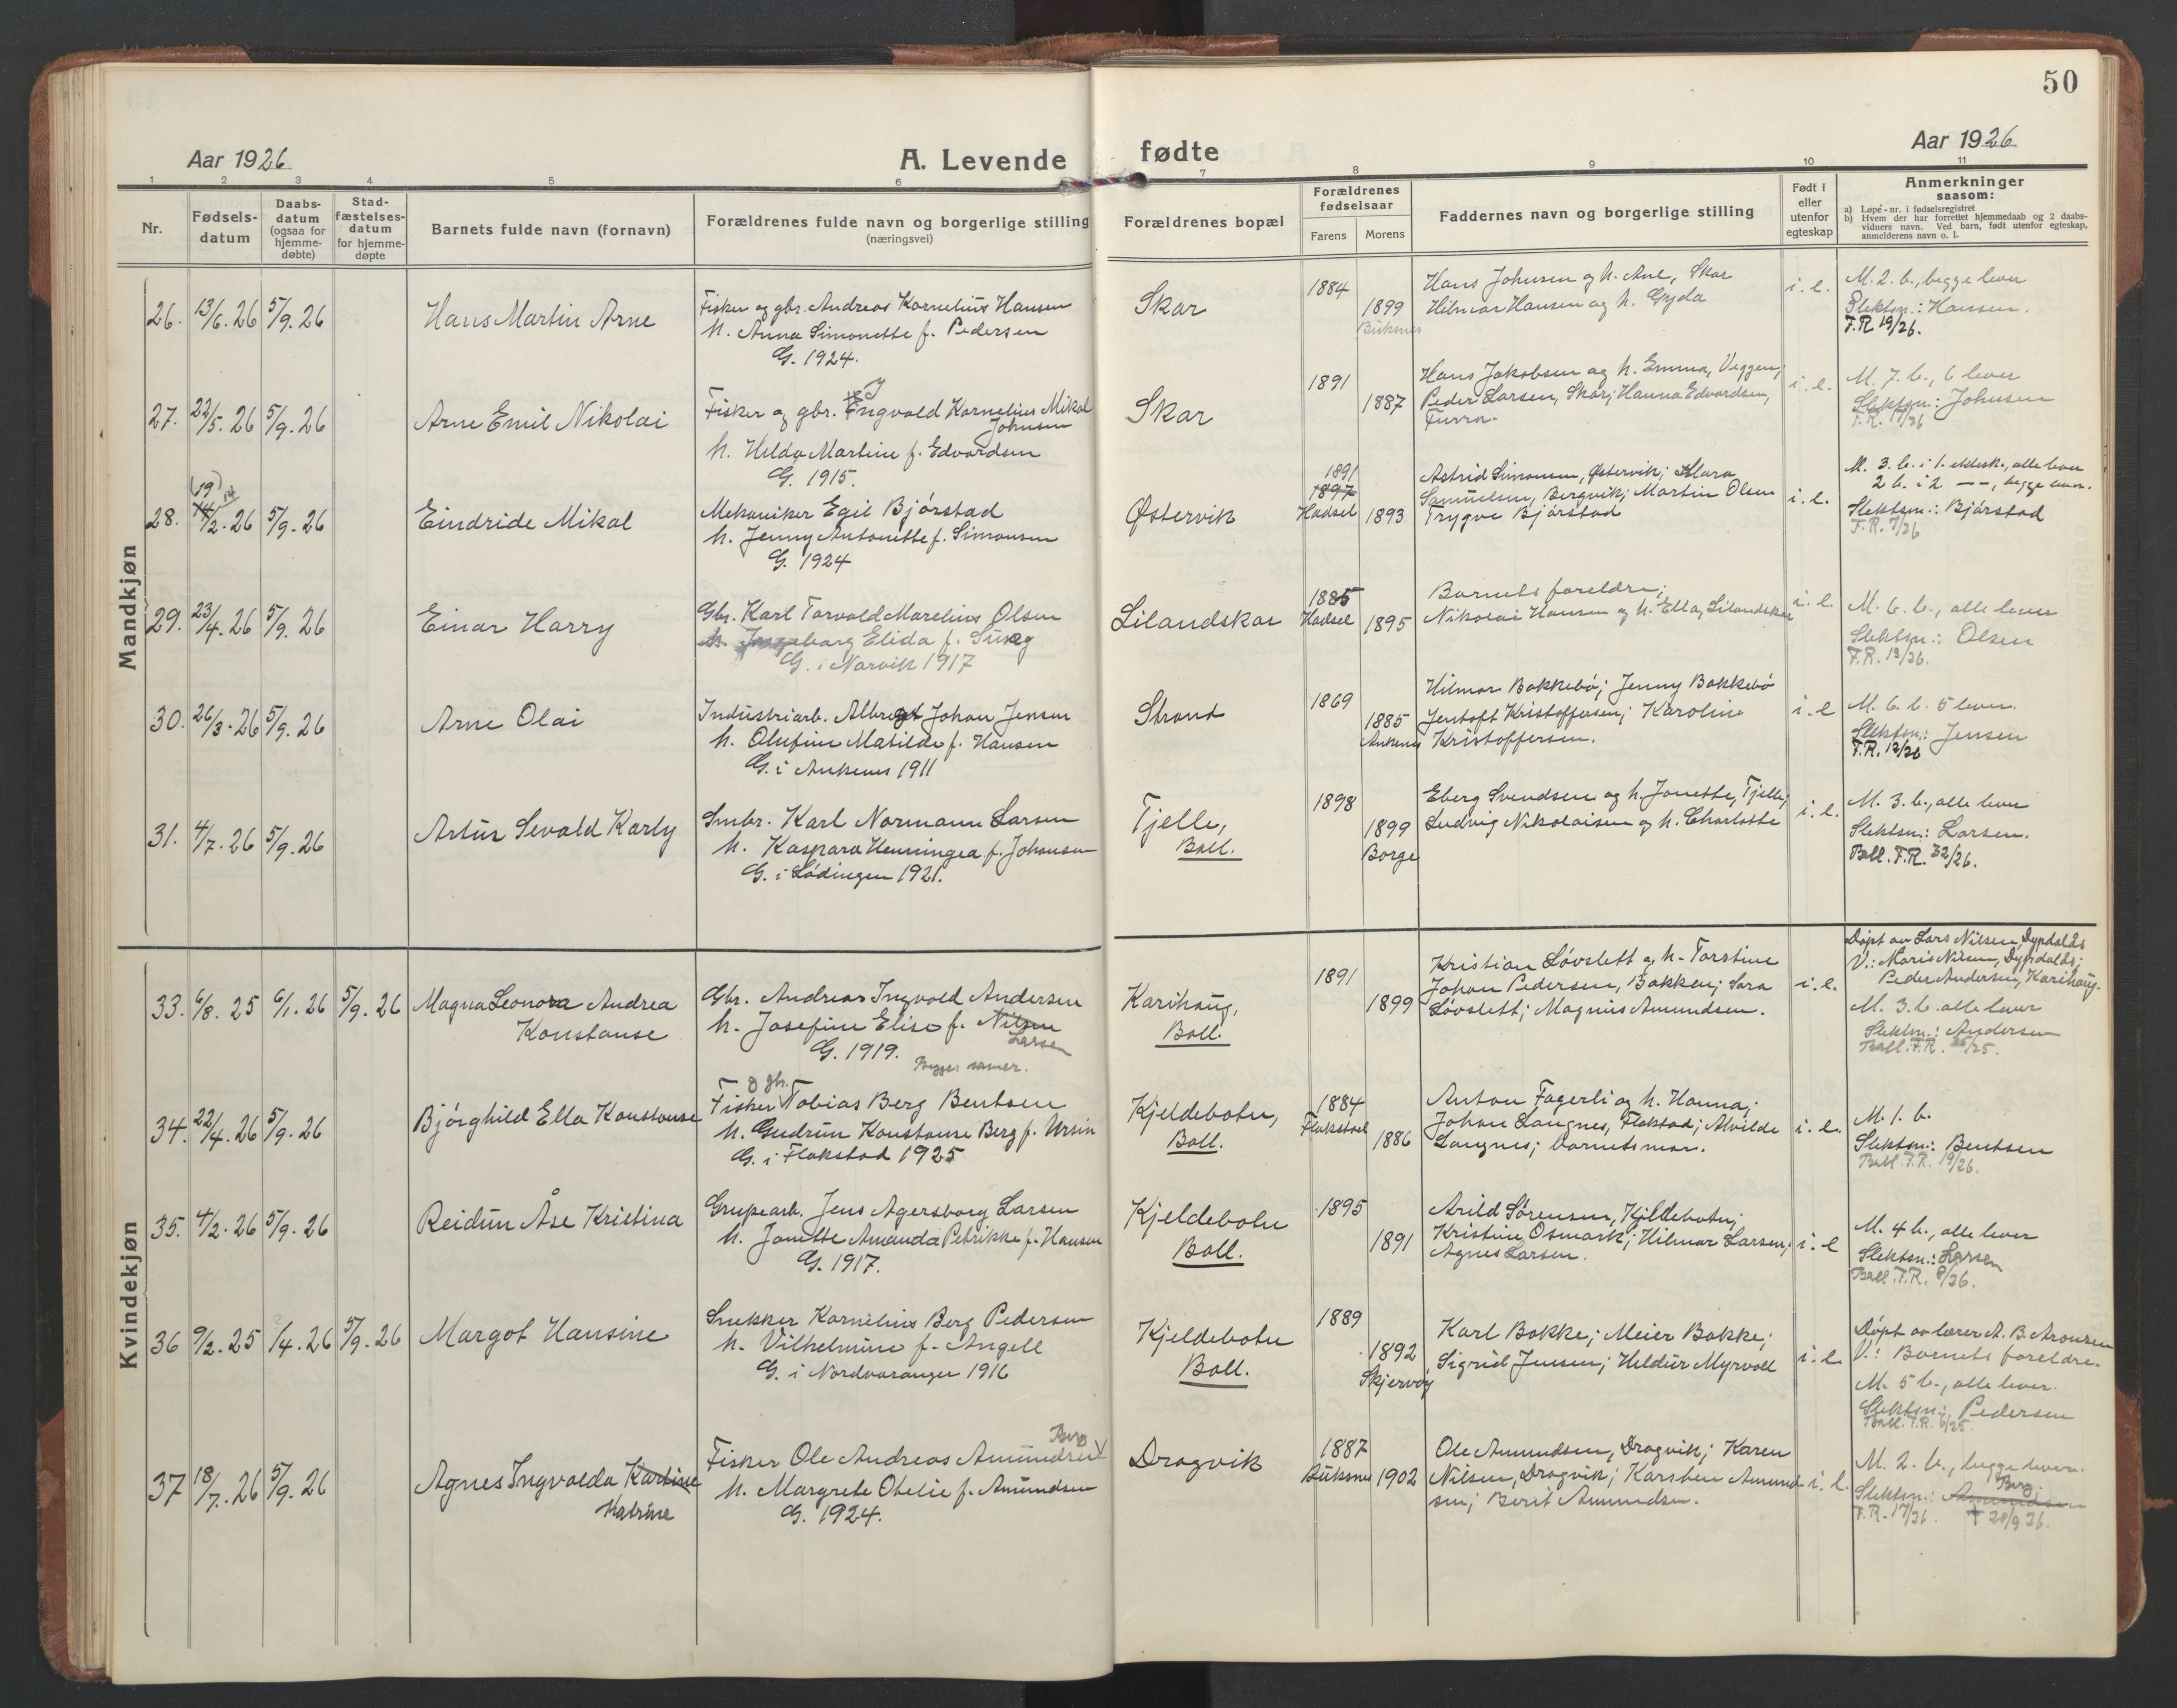 50
Aar 1926
A. Levende
fødte
Aar 1926
1 2 3 4 5 6 7 8 9 10 11
Nr.
Fødsels-
datum
Daabs-
datum
(ogsaa for
hjemme-
døbte)
Stad-
fæstelses-
datum
for hjemme-
døpte
Barnets fulde navn (fornavn)
Forældrenes fulde navn og borgerlige stilling
(næringsvei)
Forældrenes bopæl
Forældrenes
fødselsaar
Farens Morens
Faddernes navn og borgerlige stilling
Født i
eller
utenfor
egteskap
Anmerkninger
saasom:
a) Løpe-nr. i fødselsregistret
b) Hvem der har forrettet hjemmedaab og 2 daabs-
vidners navn. Ved barn, født utenfor egteskap,
anmelderens navn o. l.
Mandkjøn
26. 13/6. 26 5/9. 26
Hans Martin Arne
Fisker og gbr. Andreas Kornelius Hansen
h. Anna Simonette f. Pedersen
G. 1924.
Skar
1884
1899
Buksnes
Hans Johnsen og h. Ane, Skar
Hilmar Hansen og h. Gyda
i. e.
M. 2. b., begge lever
Slektsn.: Hansen.
F.R. 19/26.
27. 22/5. 26 5/9. 26
Arne Emil Nikolai
Fisker og gbr. Ingvald Kornelius Mikal
Johnsen
h. Helda Martine f. Edvardsen
G. 1915.
Skar
1891
1887
Hans Jakobsen og h. Emma, Veggen;
Peder Larsen, Skar; Hanna Edvardsen,
Furra.
i. e.
M. 7. b., 6 lever
Slektsn.: Johnsen
F.R. 17/26
28. (19) 14/2. 26 5/9. 26
Eindride Mikal
Mekaniker Egil Bjørstad
h. Jenny Antonette f. Simonsen
G. 1924
Østervik
1891
1897
Hadsel 1893
Astrid Simonsen, Østervik; Klara
Samuelsen, Bergvik; Martin Olsen
Trygve Bjørstad
i. e.
M. 3. b. i 1. ektesk., alle lever
2 b. i 2. — —, begge lever.
Slektsn.: Bjørstad
F.R. 7/26
29. 23/4. 26 5/9. 26
Einar Harry
Gbr. Karl Torvald Marelius Olsen
h. Ingeborg Elida f.
G. i Narvik 1917
Lilandskar
1885
Hadsel 1895
Barnets foreldre;
Nikolai Hansen og h. Ella, Lilandskar
i. e.
M. 6. b., alle lever
Slektsn.: Olsen
F.R. 13/26.
30. 26/3. 26 5/9. 26
Arne Olai
Industriarb. Albregt Johan Jensen
h. Olufine Matilde f. Hansen
G. i Ankenes 1911
Strand
1869
1885
Ankenes
Hilmar Bakkebø; Jenny Bakkebø
Jentoft Kristoffersen; Karoline
Kristoffersen.
i. e
M. 6. b. 5 lever.
Slektsn.: Jensen
F.R. 12/26
31. 4/7. 26 5/9. 26
Artur Sevald Karly
Smbr. Karl Normann Larsen
h. Kaspara Henningea f. Johansen
G. i Lødingen 1921.
Tjelle,
Ball.
1898
1899
Borge
Eberg Svendsen og h. Jonette, Tjelle;
Ludvig Nikolaisen og h. Charlotte
i. e.
M. 3. b., alle lever
Slektsn.: Larsen.
Ball. F.R. 32/26.
Kvindekjøn
33. 6/8. 25 6/1. 26 5/9. 26
Magna Leonora Andrea
Konstanse
Gbr. Andreas Ingvald Andersen
h. Josefine Elise f. Nilsen
Larsen
G. 1919.
Begge: samer.
Karihaug,
Ball.
1891
1899
Kristian Løvslett og h. Torstine
Johan Pedersen, Bakken; Sara
Løvslett; Magnus Amundsen.
i. e.
Døpt av Lars Nilsen, Dypdalås
V.: Maris Nilsen, Dypdalås;
Peder Andersen, Karihaug.
M. 3. b. alle lever
Slektsn.: Andersen
Ball. F.R. 25/25.
34. 22/4. 26 5/9. 26
Bjørghild Ella Konstanse
og gbr.
Fisker Tobias Berg Bentsen
h. Gudrun Konstanse Berg f. Ursin
G. i Flakstad 1925
Kjeldebotn,
Ball.
1884
Flakstad
1886
Anton Fagerli og h. Hanna;
Johan Langnes, Flakstad; Alvilde
Langnes; barnets mor.
i. e.
M. 1. b.
Slektsn.: Bentsen
Ball. F.R. 19/26.
35. 4/2. 26 5/9. 26
Reidun Åse Kristina
Grupearb. Jens Agersborg Larsen
h. Jonette Amanda Petrikke f. Hansen
G. 1917.
Kjeldebotn
Ball.
1895
1891
Arild Sørensen, Kjeldebotn;
Kristine Osmark; Hilmar Larsen;
Agnes Larsen.
i. e
M. 4 b., alle lever
Slektsn.: Larsen
Ball. F.R. 8/26.
36 9/2. 25 /4. 26 5/9. 26
Margot Hansine
Snekker Kornelius Berg Pedersen
h. Vilhelmine f. Angell
G. i Nordvaranger 1916
Kjeldebotn
Ball.
1889
1892
Skjervøy
Karl Bakke; Meier Bakke;
Sigrid Jensen; Heldur Myrvoll
i. e.
Døpt av lærer A. B. Aronsen
V.: Barnets foreldre.
M. 5 b., alle lever.
Slektsn.: Pedersen
Ball. F.R. 6/25.
37 18/7. 26 5/9. 26
Agnes Ingvalda Karline
Katrine
Berg
Fisker Ole Andreas Amundsen
h. Margrete Otelie f. Amundsen
G. 1924.
Dragvik
1887
Buksnes 1902
Ole Amundsen, Dragvik; Karen
Nilsen, Dragvik; Karsten Amund-
sen; Berit Amundsen.
i. e.
M. 2. b., begge lever.
Berg.
Slektsn.: Amundsen
F.R. 17/26. † 20/9 26.